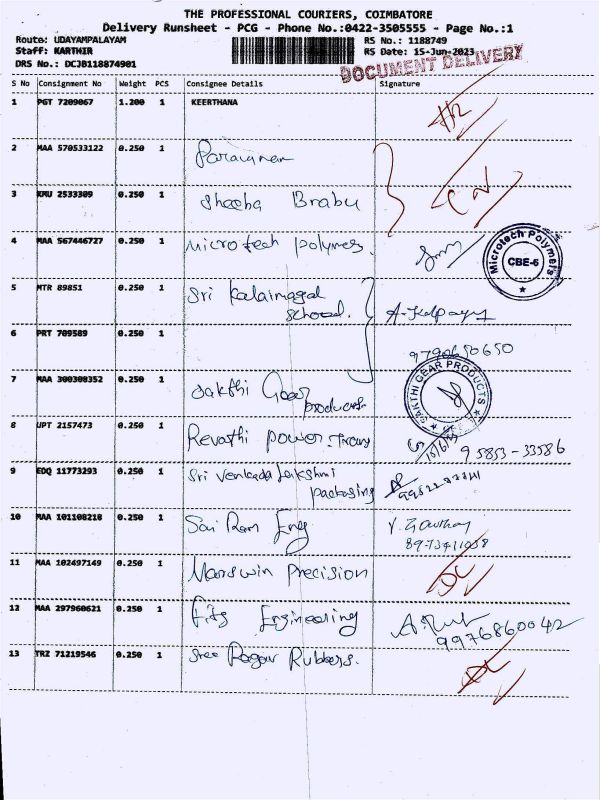 THE PROFESSIONAL COURIERS, COIMBATORE
Delivery Runsheet - PCG - Phone No.:0422-3505555 - Page No.:1
Route: UDAYAMPALAYAM
RS No.: 1188749
Staff: KARTHIR
RS Date: 15-Jun-2023
DRS No.: DCJB118874901
DOCUMENT DELIVERY
S No Consignment No Weight PCS Consignee Details Signature
1 PGT 7209067 1.200 1 KEERTHANA
2 MAA 570533122 0.250 1
3 KMU 2533309 0.250 1 Sheeba Brabu
4 MAA 567446727 0.250 1 Microtech polymers.
Microtech Polymers
CBE-6
5 MTR 89851 0.250 1 Sri Kalaimagal
school.
6 PRT 709589 0.250 1
9790650650
7 MAA 300308352 0.250 1 Sakthi Gear
products
SAKTHI GEAR PRODUCTS
8 UPT 2157473 0.250 1 Revathi power
95853-33586
9 EDQ 11773293 0.250 1 Sri Venkada lakshmi
packaging
10 MAA 101108218 0.250 1 Sai Ram Eng
11 MAA 102497149 0.250 1 Marswin Precision
12 MAA 297960621 0.250 1 Fits Engineering
9976860042
13 TRZ 71219546 0.250 1 Sree Ragav Rubbers.